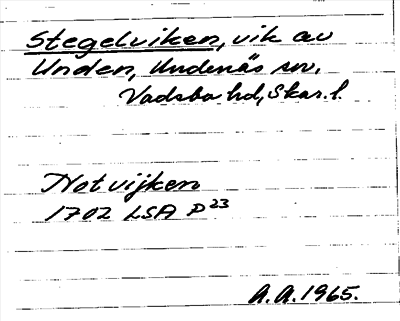 Stegelviken, vik av
Unden, Undenäs sn,
Vadsbo hd, Skar. l.
Notvijken
1702 LSA P²³
A. A. 1965.